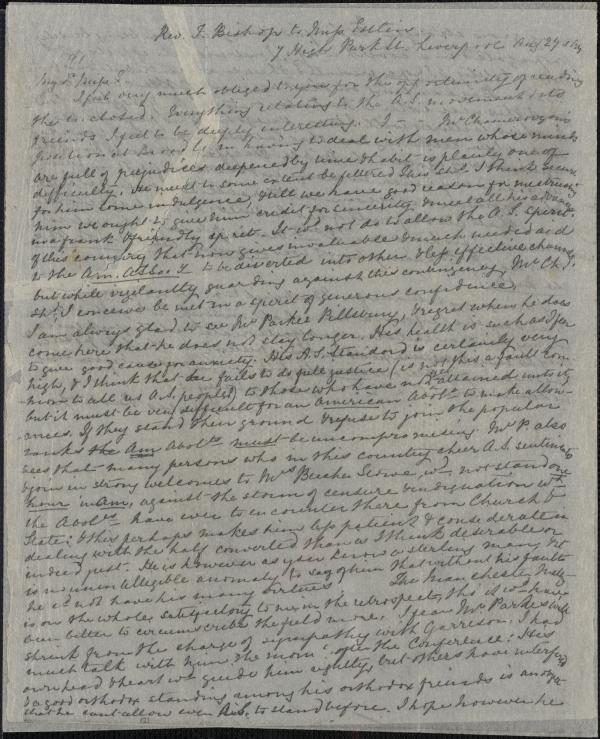 Rev. F. Bishop to Miss Estlin.
7 High Park St. Liverpool Aug 29
My dr Miss E.
I feel very much obliged to you for the opportunity of reading
the enclosed. Everything relating to the A.S. movement & its
friends I feel to be deeply interesting. Mr Chamerovzow's
position at Broad St. in having to deal with men whose minds
are full of prejudices deepened by time & habit is plainly one of
difficulty. He must to some extent be fettered & this shd. I think secure
for him some indulgence. Still we have good reason for
him we ought to give him credit for sincerity & meet all his advances
in a frank & friendly spirit. It will not do to allow the A.S. spirit
of this country that now gives invaluable & much needed aid
to the Am. A.S. Soc. to be diverted into other & less effective channels
but while vigilantly guarding against this contingency Mr Ch.
shd. I conceive be met in a spirit of generous confidence.
I am always glad to see Mr Parker Pillsbury, & regret when he does
come here that he does not stay longer. His health is such as I fear
to give good cause for anxiety. His A.S. Standard is certainly very
high, & I think that he fails to do full justice (is not this a fault com-
mon to all us A.S. people?) to those who have not attained unto it,
but it must be very difficult for an American Abolt. to make allow-
ances. If they stand their ground & refuse to join the popular
ranks the Am Abolts must be uncompromising. Mr P. also
sees that many persons who in this country cheer A.S. sentiments
& join in strong welcomes to Mrs Beecher Stowe wd. not stand one
hour in Am. against the storm of censure & indignation wh
the Abolts have ever to encounter there from Church &
State; & this perhaps makes him less patient & considerate in
dealing with the half converted than is I think desirable or
indeed just. He is however as you know a sterling man, & it
is no unintelligible anomaly to say of him that without his faults
he cd. not have his many virtues. The Manchester
is on the whole satisfactory to me in the retrospect, tho' it wd. have
been better to circumscribe the field more. I fear Mr Parker will
shrink from the charge of sympathy with Garrison. I had
much talk with him the morn. after the Conference. His
own head & heart wd. guide him rightly, but others have interfered
& a good orthodox standing among his orthodox friends is
that he cant allow even A.S. to stand before. I hope however he